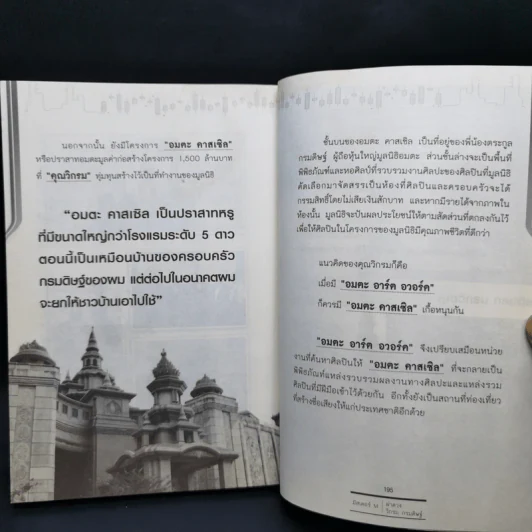 นอกจากนั้น ยังมีโครงการ "อมตะ คาสเซิล"
หรือปราสาทอมตะมูลค่าก่อสร้างโครงการ 1,500 ล้านบาท
ที่ "คุณวิกรม" ทุ่มทุนสร้างไว้เป็นที่ทำงานของมูลนิธิ
"อมตะ คาสเซิล เป็นปราสาทหรู
ที่มีขนาดใหญ่กว่าโรงแรมระดับ 5 ดาว
ตอนนี้เป็นเหมือนบ้านของครอบครัว
กรมดิษฐ์ของผม แต่ต่อไปในอนาคตผม
จะยกให้ชาวบ้านเอาไปใช้"
ชั้นบนของอมตะ คาสเซิล เป็นที่อยู่ของพี่น้องตระกูล
กรมดิษฐ์ ผู้ถือหุ้นใหญ่มูลนิธิอมตะ ส่วนชั้นล่างจะเป็นพื้นที่
พิพิธภัณฑ์และหอศิลป์ที่รวบรวมงานศิลปะของศิลปินที่มูลนิธิ
คัดเลือกมาจัดสรรเป็นห้องที่ศิลปินและครอบครัวจะได้
กรรมสิทธิ์โดยไม่เสียเงินสักบาท และหากมีรายได้จากภาพใน
ห้องนั้น มูลนิธิจะปันผลประโยชน์ให้ตามสัดส่วนที่ตกลงกันไว้
เพื่อให้ศิลปินในโครงการของมูลนิธิมีคุณภาพชีวิตที่ดีกว่า
แนวคิดของคุณวิกรมก็คือ
เมื่อมี "อมตะ อาร์ต อวอร์ด"
ก็ควรมี "อมตะ คาสเซิล" เกื้อหนุนกัน
"อมตะ อาร์ต อวอร์ด" จึงเปรียบเสมือนหน่วย
งานที่ค้นหาศิลปินให้ "อมตะ คาสเซิล" ที่จะกลายเป็น
พิพิธภัณฑ์แหล่งรวบรวมผลงานทางศิลปะและแหล่งรวม
ศิลปินที่มีฝีมือเข้าไว้ด้วยกัน อีกทั้งยังเป็นสถานที่ท่องเที่ยว
ที่สร้างชื่อเสียงให้แก่ประเทศชาติอีกด้วย
195
วิกรม กรมดิษฐ์